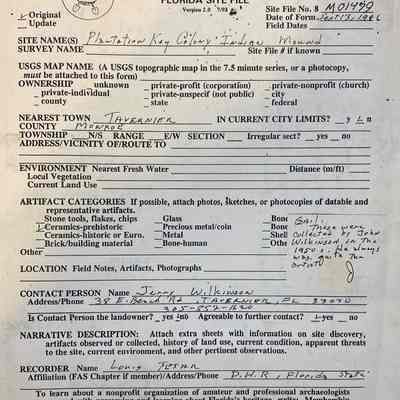 FLORIDA SITE FILE
Version 2.0 7/93
Original
Update
Site File No. 8 MO1479
Date of Form Sept 13, 1996
Field Dates
SITE NAME(S) Plantation Key Colony Indian Mound
SURVEY NAME Site File # if known
USGS MAP NAME (A USGS topographic map in the 7.5 minute series, or a photocopy,
must be attached to this form)
OWNERSHIP unknown private-profit (corporation) private-nonprofit (church)
private-individual private-unspecif (not public) city
county state federal
NEAREST TOWN TAVERNIER IN CURRENT CITY LIMITS? y n
COUNTY MONROE
TOWNSHIP N/S RANGE E/W SECTION Irregular sect? yes no
ADDRESS/VICINITY OF/ROUTE TO
ENVIRONMENT Nearest Fresh Water Distance (m/ft)
Local Vegetation
Current Land Use
ARTIFACT CATEGORIES If possible, attach photos, sketches, or photocopies of datable and
representative artifacts.
Stone tools, flakes, chips Glass
Ceramics-prehistoric Precious metal/coin
Ceramics-historic or Euro. Metal
Brick/building material Bone-human
Other
Gail:
These were
collected by John
Wilkinson in the
1950's. He always
was quite the
artist
LOCATION Field Notes, Artifacts, Photographs
CONTACT PERSON Name Jerry Wilkinson
Address/Phone 38 E. Beach Rd, TAVERNIER, FL 33070
305-852-1620
Is Contact Person the landowner? yes no Agreeable to further contact? yes no
NARRATIVE DESCRIPTION: Attach extra sheets with information on site discovery,
artifacts observed or collected, history of land use, current condition, apparent threats
to the site, current environment, and other pertinent observations.
RECORDER Name Louis Tesar
Affiliation (FAS Chapter if member)/Address/Phone D.H.R., Florida State
To learn about a nonprofit organization of amateur and professional archaeologists